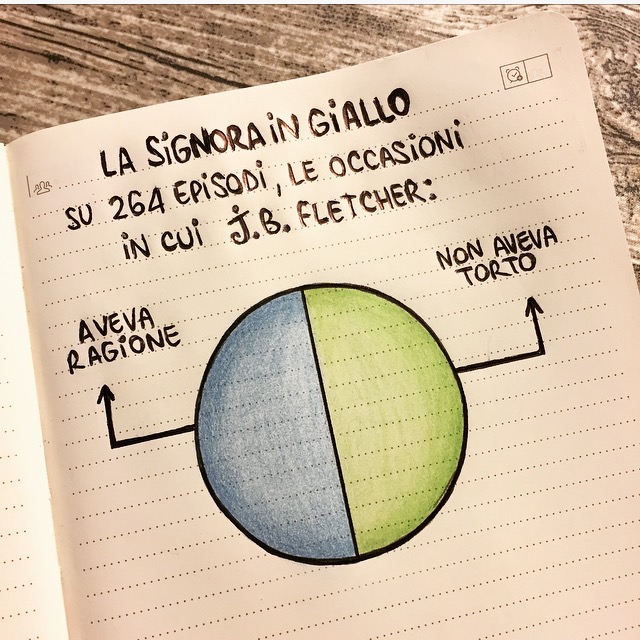 LA SiGNORA iN GiALLO
SU 264 EPiSODi, LE OCCASiONi
iN CUi J.B. FLETCHER:
NON AVEVA
TORTO
AVEVA
RAGiONE